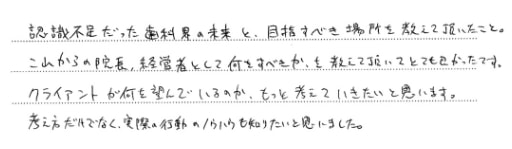 認識不足だった歯科界の未来と、目指すべき場所を教えて頂いたこと。
これからの院長、経営者として何をすべきか、を教えて頂いてとても良かったです。
クライアントが何を望んでいるのか、もっと考えていきたいと思います。
考え方だけでなく、実際の行動のノウハウも知りたいと思いました。